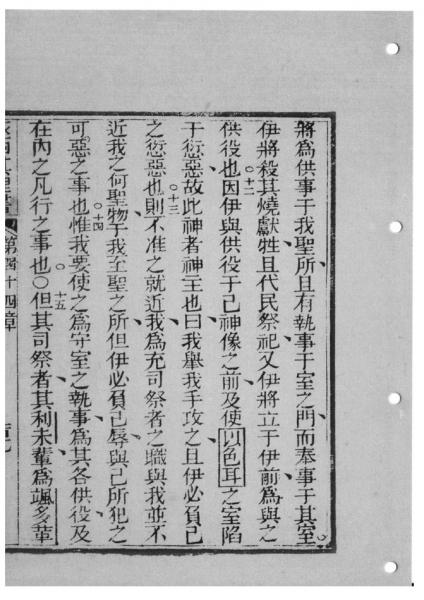 將為供事于我聖所且有執事于室之門而奉事于其室
伊將殺其燒獻牲且代民祭祀又伊將立于伊前為與之
供役也十二因伊與供役于己神像之前及使以色耳之室陷
于愆惡故此神者神主也曰我舉我手攻之且伊必負己
之愆惡也十三則不准之就近我為充司祭者之職與我並不
近我之何聖物于我至聖之所但伊必負己辱與己所犯之
可惡之事也十四惟我要使之為守室之執事為其各供役及
在內之凡行之事也○十五但其司祭者其利未輩為颯多輩
第四十四章